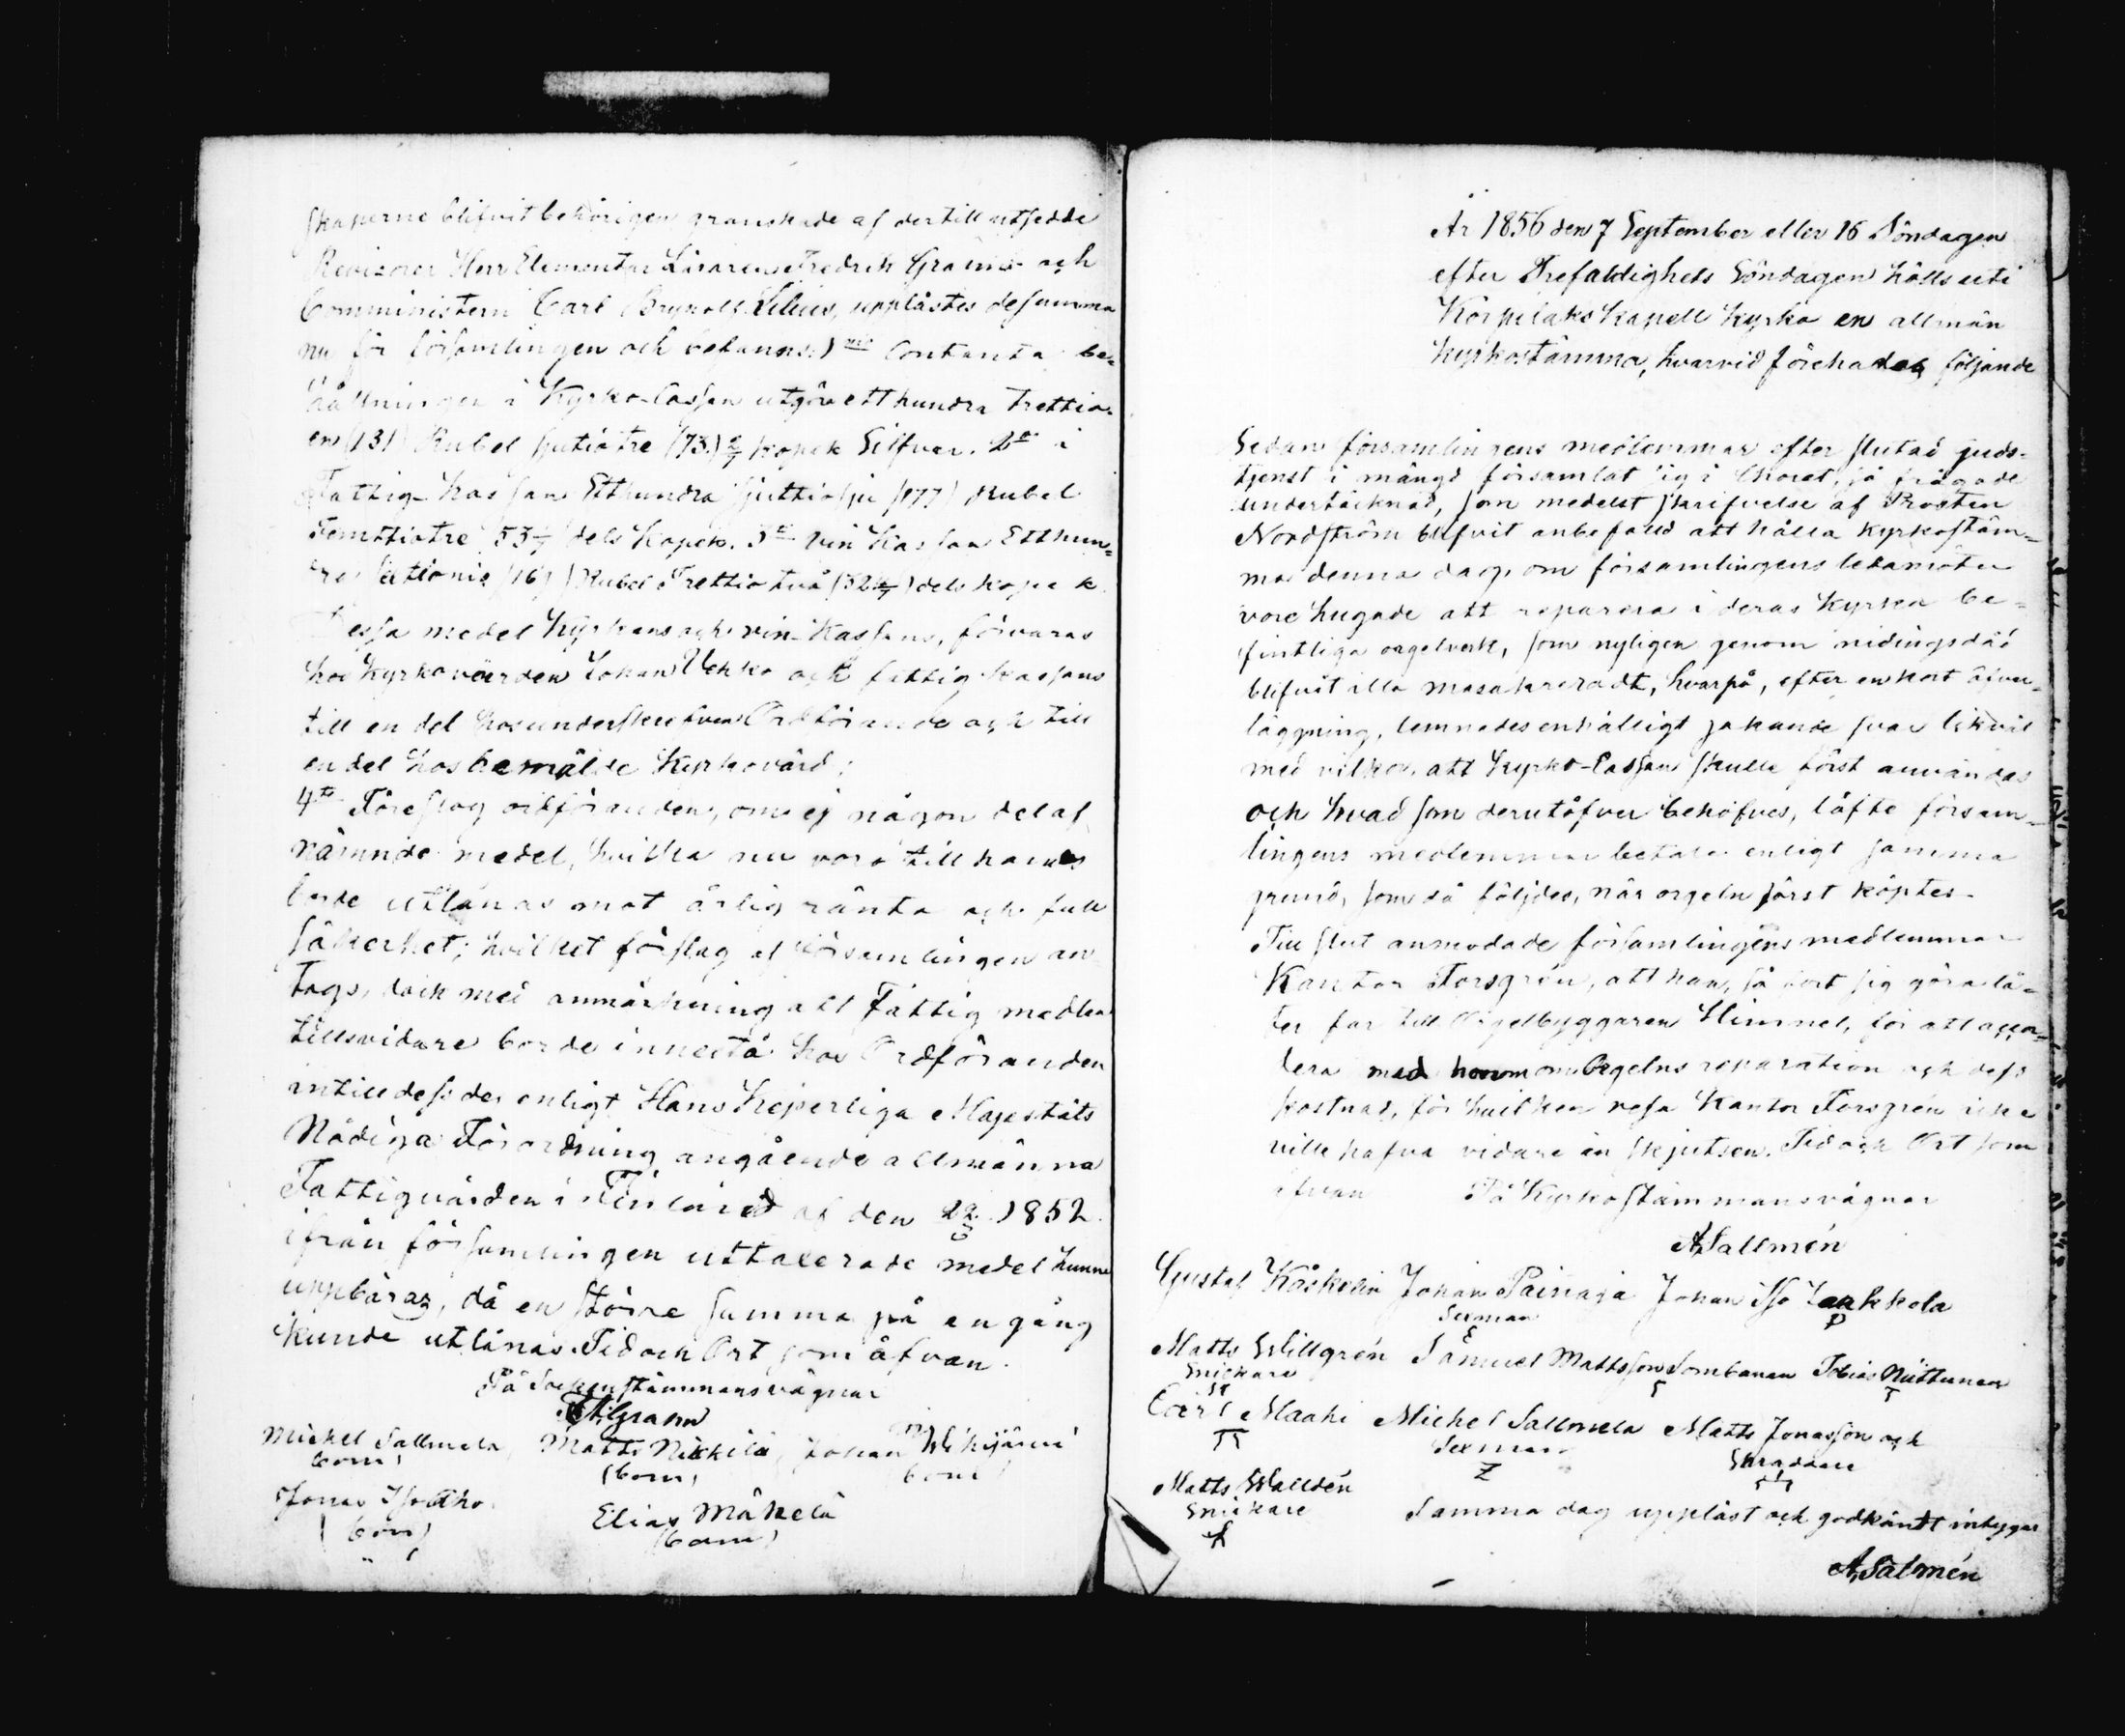 skaperne blifvit behörigen granskade af dertill utsedde
Revisorer Herr Elementar Läraren Fredrik Granö och
Comministern Carl Brynolf Lilius, upplästes desamma
nu för församlingen och befanns: 1mo Contanta be-
hållningen i Kyrko-Cassan utgöra etthundra trettio-
en (131) Rubel sjutiotre (73) 2/7 kopek Silfver. 2o i
Fattig-Kassan Etthundra sjuttiosju (177) Rubel
Femttiotre 53 dels Kopek. 3o Vin Kassan Etthun-
dra (161) Rubel Trettiotvå (32 4/7) dels kopek
Dessa medel Kyrkans och vin-Kassans, förvaras
hos Kyrkovärden Johan Uckko och fattig-Kassans
till en del hos underskrefven Ordförande och till
en del hos bemälde Kyrkovärd;
4to Föreslog ordföranden, om ej någon del af
nämnde medel, hvilka nu voro till hands
borde utlånas mot årlig ränta och full
säkerhet; hvilket förslag af församlingen an-
togs, dock med anmärkning att Fattig medlen
tillsvidare borde innestå hos Ordföranden
intill dess de enligt Hans Kejserliga Majestäts
Nådiga Förordning angående allmänna
Fattigvården i Finland af den 22/3 1852
ifrån församlingen uttaxerade medel hunne
uppbäras, då en större summa på en gång
kunde utlånas. Tid och Ort som åfvan.
På Sockenstämmans vägnar
Grahn
Michel Sallmela, Matts Nikkilä, Johan
(bom) (bom) (bom)
Jonas
(bom) Elias Mäkelä
(bom)
År 1856 den 7 September eller 16 Söndagen
efter Trefaldighets Söndagen hölls uti
Korpilaks Kapell kyrka en allmän
kyrkostämma, hvarvid förehades följande
Sedan församlingens medlemmar efter slutad guds-
tjenst i mängd församlat sig i Choret, så frågade
undertecknad, som medelst skrifvelse af Prosten
Nordström blifvit anbefalld att hålla Kyrkostäm-
ma denna dag, om församlingens ledamöter
vore hugade att reparera i deras Kyrka be-
fintliga orgelverk, som nyligen genom nidingsdåd
blifvit illa masakreradt, hvarpå, efter en kort öfver-
läggning, lemnades enhälligt jakande svar likväl
med vilkor, att Kyrko-Cassan skulle först användas
och hvad som derutöfver behöfves, löfte försam-
lingens medlemmar betala enligt samma
grund, som då följdes, när orgeln först köptes.
Till slut anmodade församlingens medlemmar
Kantor Forsgrén, att han, så fort sig göra lå-
ter far till Orgelbyggaren Himmel, för att accor-
dera med honom om Orgelns reparation och dess
kostnad, för hvilken resa Kantor Forsgrén icke
ville hafva vidare än skjutsen. Tid och Ort som
ofvan På Kyrkostämmans vägnar
A. Sallmén
Gustaf Käskelin Johan Päinaja Johan Iso Laukkola
Sexman
Matts Willgrén Samuel Mattsson Tombanen Tobias Niittunen
Snickare
Carl Maahi Michel Sallmela Matts Jonasson och
Sexman Skräddare
Matts Walldén
Snickare Samma dag uppläst och godkändt intygar
A. Salmén